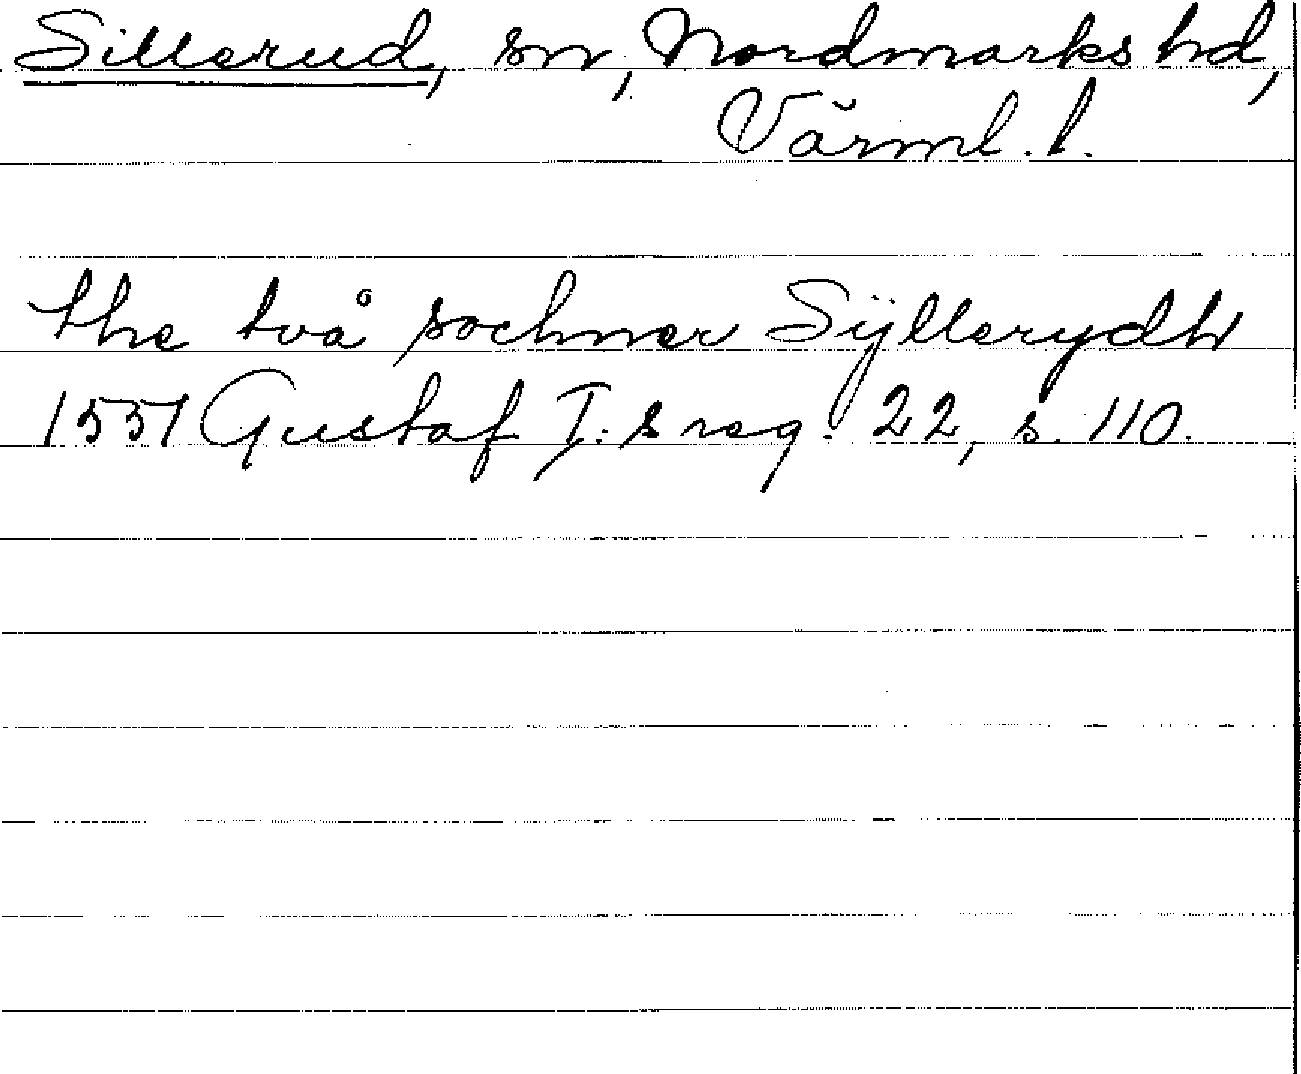 Sillerud, sn, Nordmarks hd,
Värml. l.
the två sochner Sÿllerydh
1551 Gustaf I:s reg. 22, s. 110.